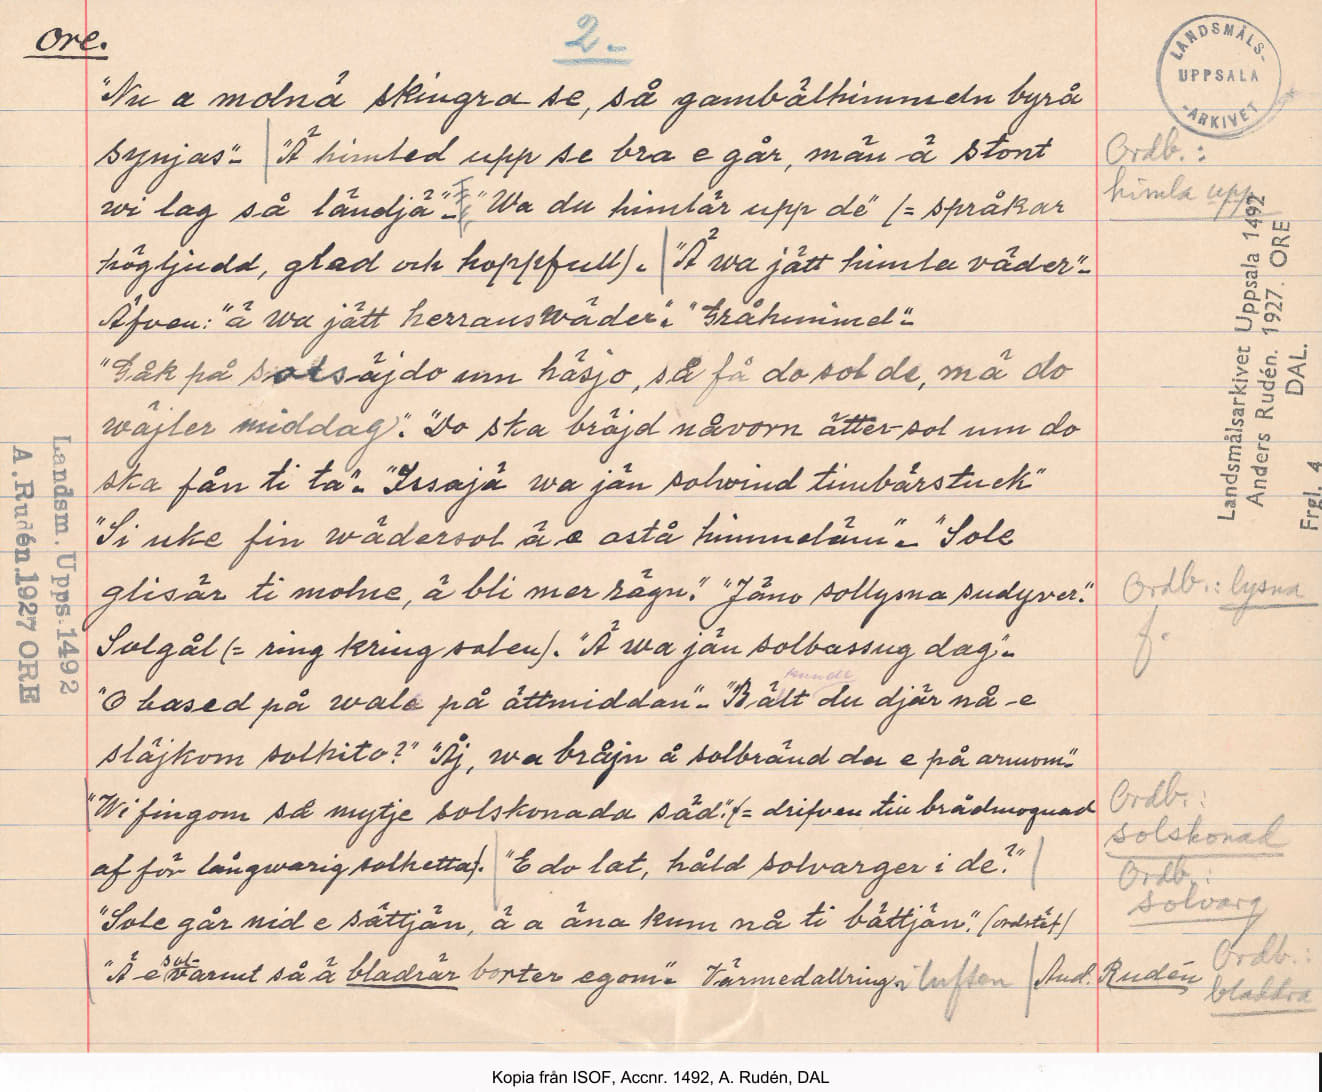 Ore.
2.-
LANDSMÅLS-
UPPSALA
-ARKIVET
"Nu a molnä skingra se, så gambälhimmeln byrå
synjas"- | "Ä himled upp se bra e går, män ä stont
wi lag så ländjä"- "Wa du himlär upp de" (= språkar
högljudd, glad och hoppfull). | "Ä wa jätt himla väder"-
Äfven: "ä wa jätt herrans wäder". "Gråhimmel"-
"Gåk på solsäjdo um häsjo, så få do sol de, mä do
wäjler middag". "Do ska bräjd nåvorn ätter-sol um do
ska fån ti ta"- "Issajä wa jän solwind timbärstuck"
"Si uke fin wädersol ä e astå himmeläm"- "Sole
glisär ti molne, ä bli mer rägn". "Jäno sollysna sudyver."
Solgål (= ring kring solen). "Ä wa jän solbassug dag"-
"O based på wale på ättmiddan"- "Bält du djär nå-e
kunde
släjkom solhito?" "Åj, wa bråjn å solbränd du e på armom"-
"Wi fingom så mytje solskonada säd". (= drifven till brådmognad
af för långwarig solhetta). | "E do lat, håld solvarger i de?" |
"Sole går nid e sättjän, ä a äna kum nå ti bättjän." (ordstäf)
"Ä-e sol-varmt så ä bladrär borter egom"- Värmedallring i luften | And. Rudén
Ordb.:
himla upp
Ordb.: lysna
f.
Ordb.:
solskonad
Ordb.:
solvarg
Ordb.:
bladdra
Landsmålsarkivet Uppsala 1492
Anders Rudén. 1927. ORE
DAL.
Frgl. 4
Landsm. Upps. 1492
A. Rudén 1927 ORE
Kopia från ISOF, Accnr. 1492, A. Rudén, DAL